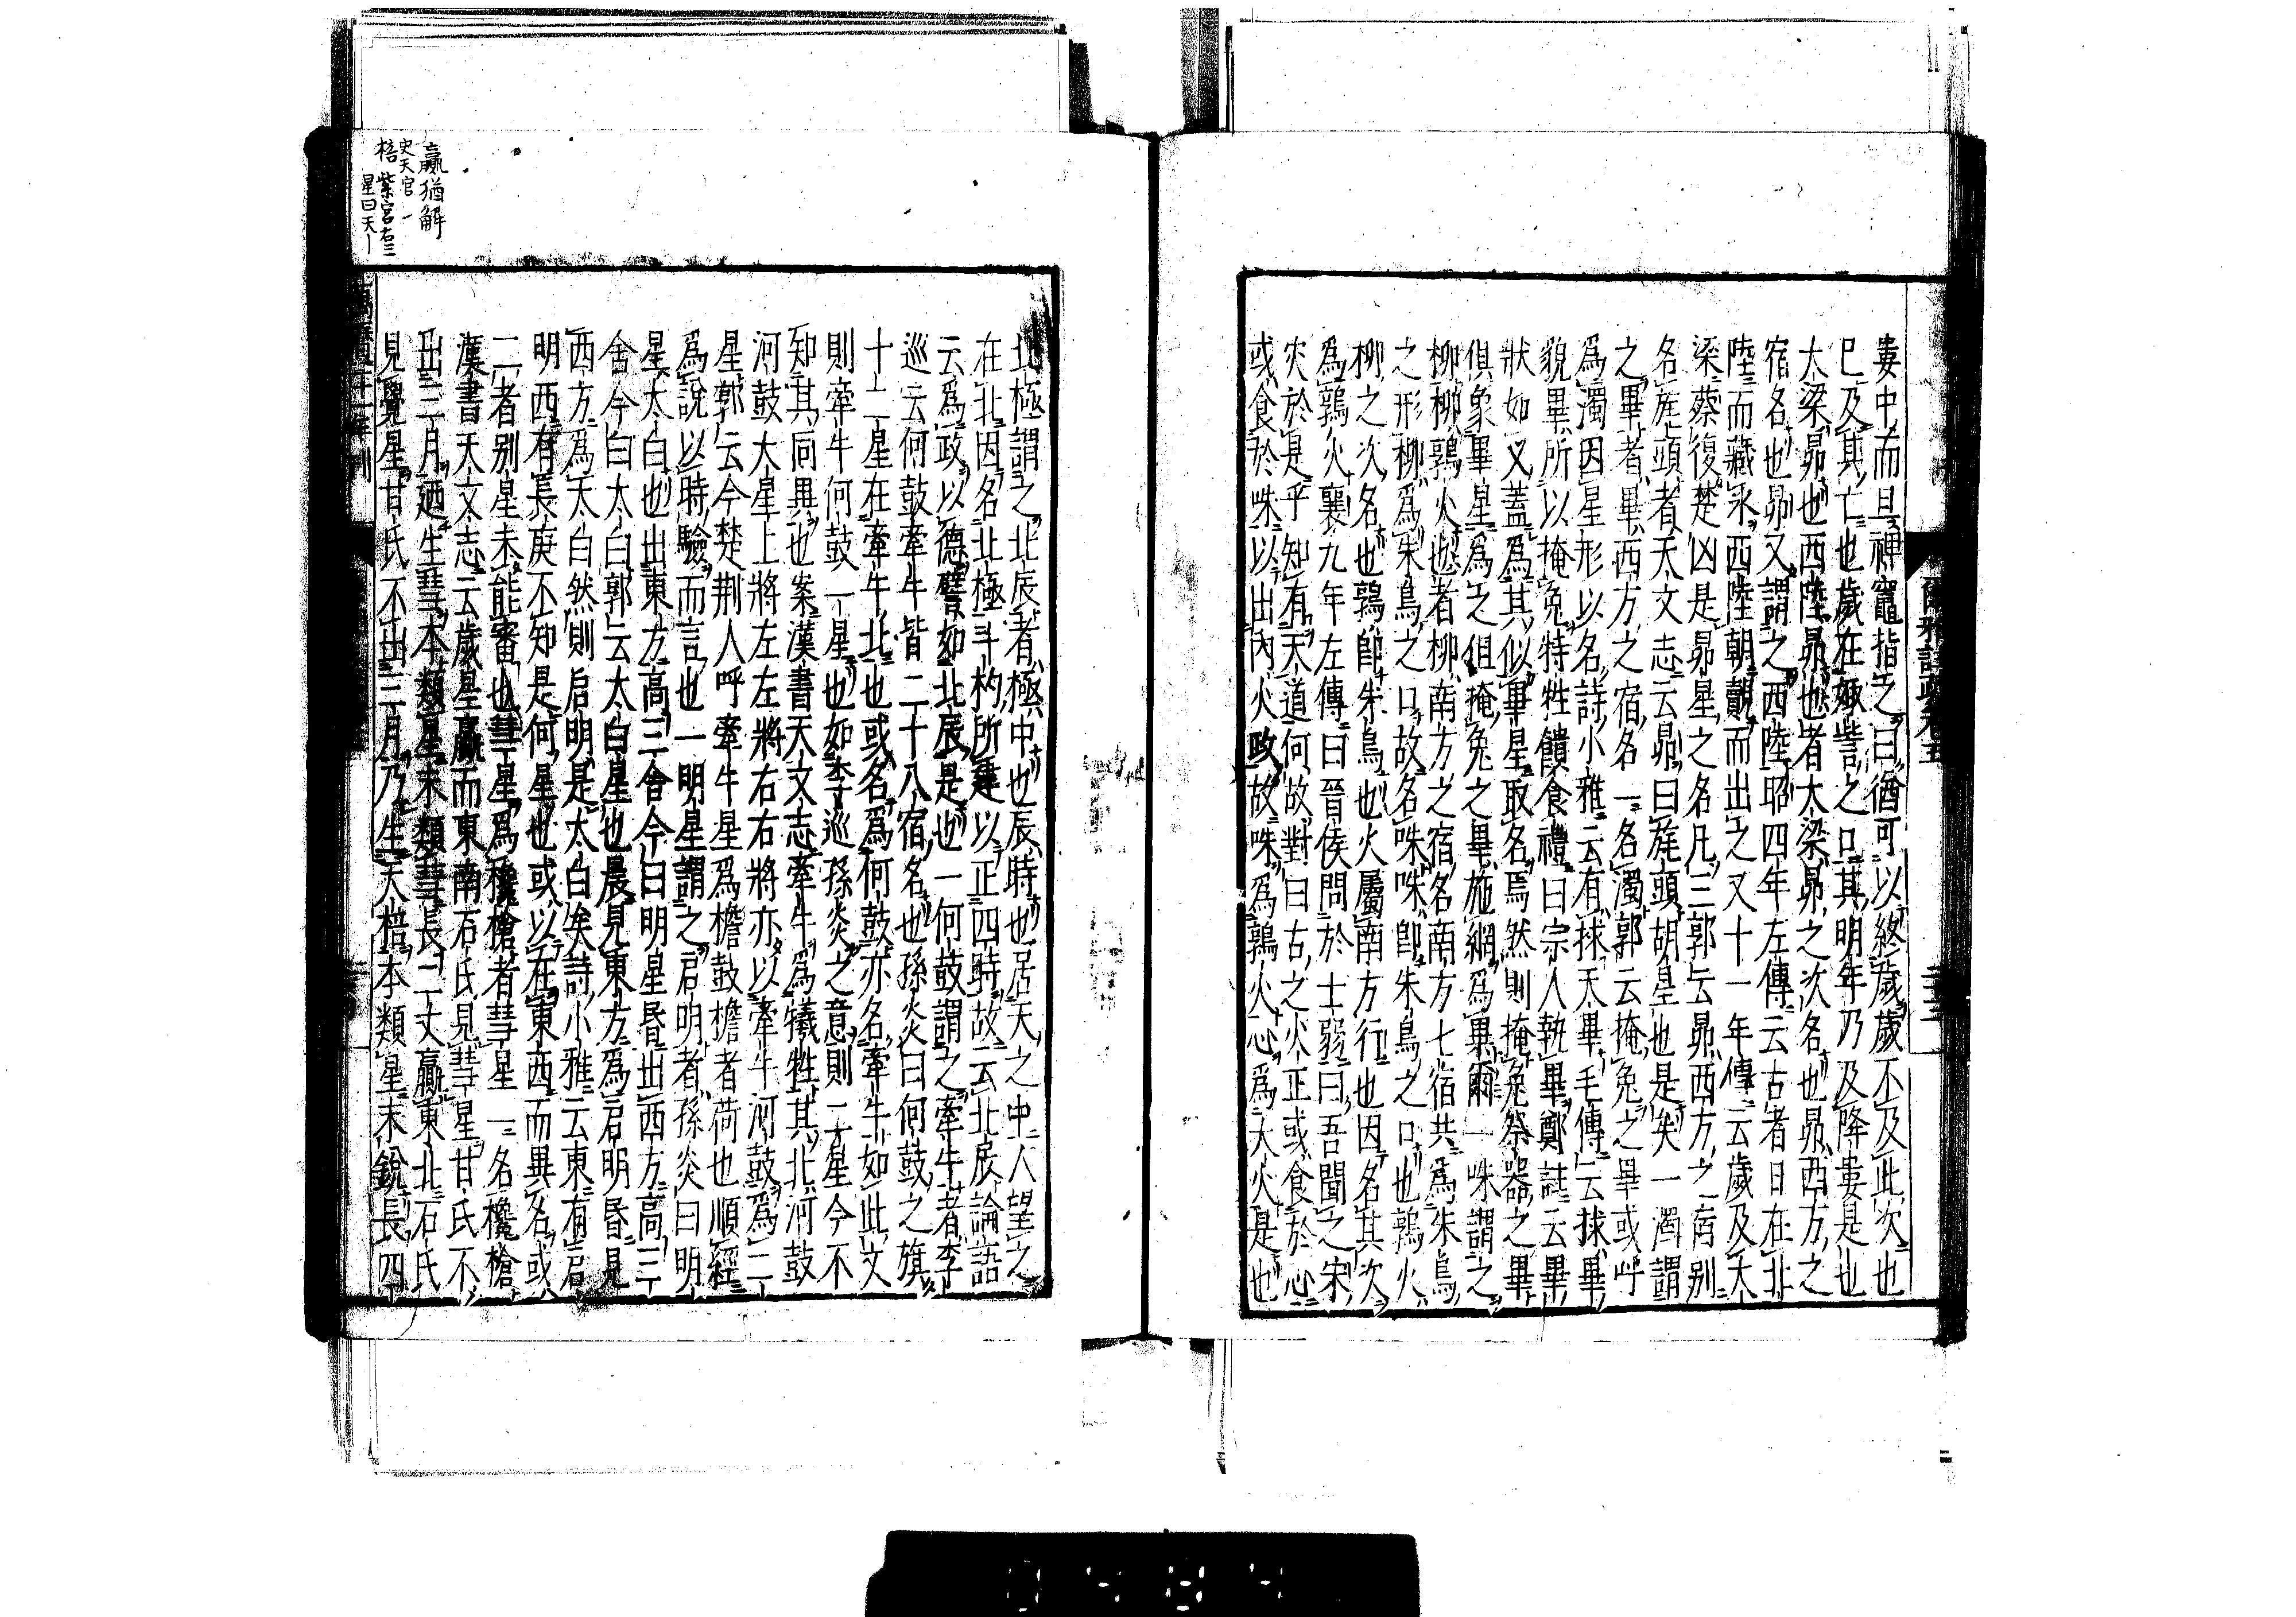 婁中而旦禆竈指之曰猶可以終歲歲不及此次也
巳及其亡也歲在娵訾之口其明年乃及降婁是也
大梁昴也西陸昴也者大梁昴之次名也昴西方之
宿名也昴又謂之西陸昭四年左傳云古者日在北
陸而藏冰西陸朝覿而出之又十一年傳云歲及大
梁蔡復楚凶是昴星之名凡三郭云昴西方之宿别
名旄頭者天文志云昴曰旄頭胡星也是矣一濁謂
之畢者畢西方之宿名一名濁郭云掩兔之畢或呼
為濁因星形以名詩小雅云有捄天畢毛傳云捄畢
貌畢所以掩兔特牲饋食禮曰宗人執畢鄭註云畢
狀如叉蓋為其似畢星取名焉然則掩兔祭器之畢
俱象畢星為之但掩兔之畢施網為異爾一咮謂之
柳柳鶉火也者柳南方之宿名南方七宿共為朱鳥
之形柳為朱鳥之口故名咮咮即朱鳥之口也鶉火
柳之次名也鶉即朱鳥也火屬南方行也因名其次
為鶉火襄九年左傳曰晉侯問於士弱曰吾聞之宋
灾於是乎知有天道何故對曰古之火正或食於心
或食於咮以出內火政故咮為鶉火心為大火是也
爾雅註疏卷五
北極謂之北辰者極中也辰時也居天之中人望之
在北因名北極斗杓所建以正四時故云北辰論語
云為政以德譬如北辰是也一何鼓謂之牽牛者李
巡云何鼓牽牛皆二十八宿名也孫炎曰何鼓之旗
十二星在牽牛北也或名為何鼓亦名牽牛如此文
則牽牛何鼓一星也如李巡孫炎之意則二星今不
知其同異也案漢書天文志牽牛為犧牲其北河鼓
河鼓大星上將左左將右右將亦以牽牛河鼓為二
星郭云今楚荆人呼牽牛星為檐鼓檐者荷也順經
為說以時驗而言也一明星謂之启明者孫炎曰明
星太白也出東方高三舍今曰明星昏出西方高三
舍今曰太白郭云太白星也晨見東方為启明昏見
西方為太白然則启明是太白矣詩小雅云東有启
明西有長庚不知是何星也或以在東西而異名或
二者别星未能審也彗星為欃槍者彗星一名欃槍
漢書天文志云歲星贏而東南石氏見彗星甘氏不
出三月廼生彗本類星末類彗長二丈贏東北石氏
見覺星甘氏不出三月乃生天棓本類星末銳長四
贏猶解
史天官
棓 紫宮右三
星曰天